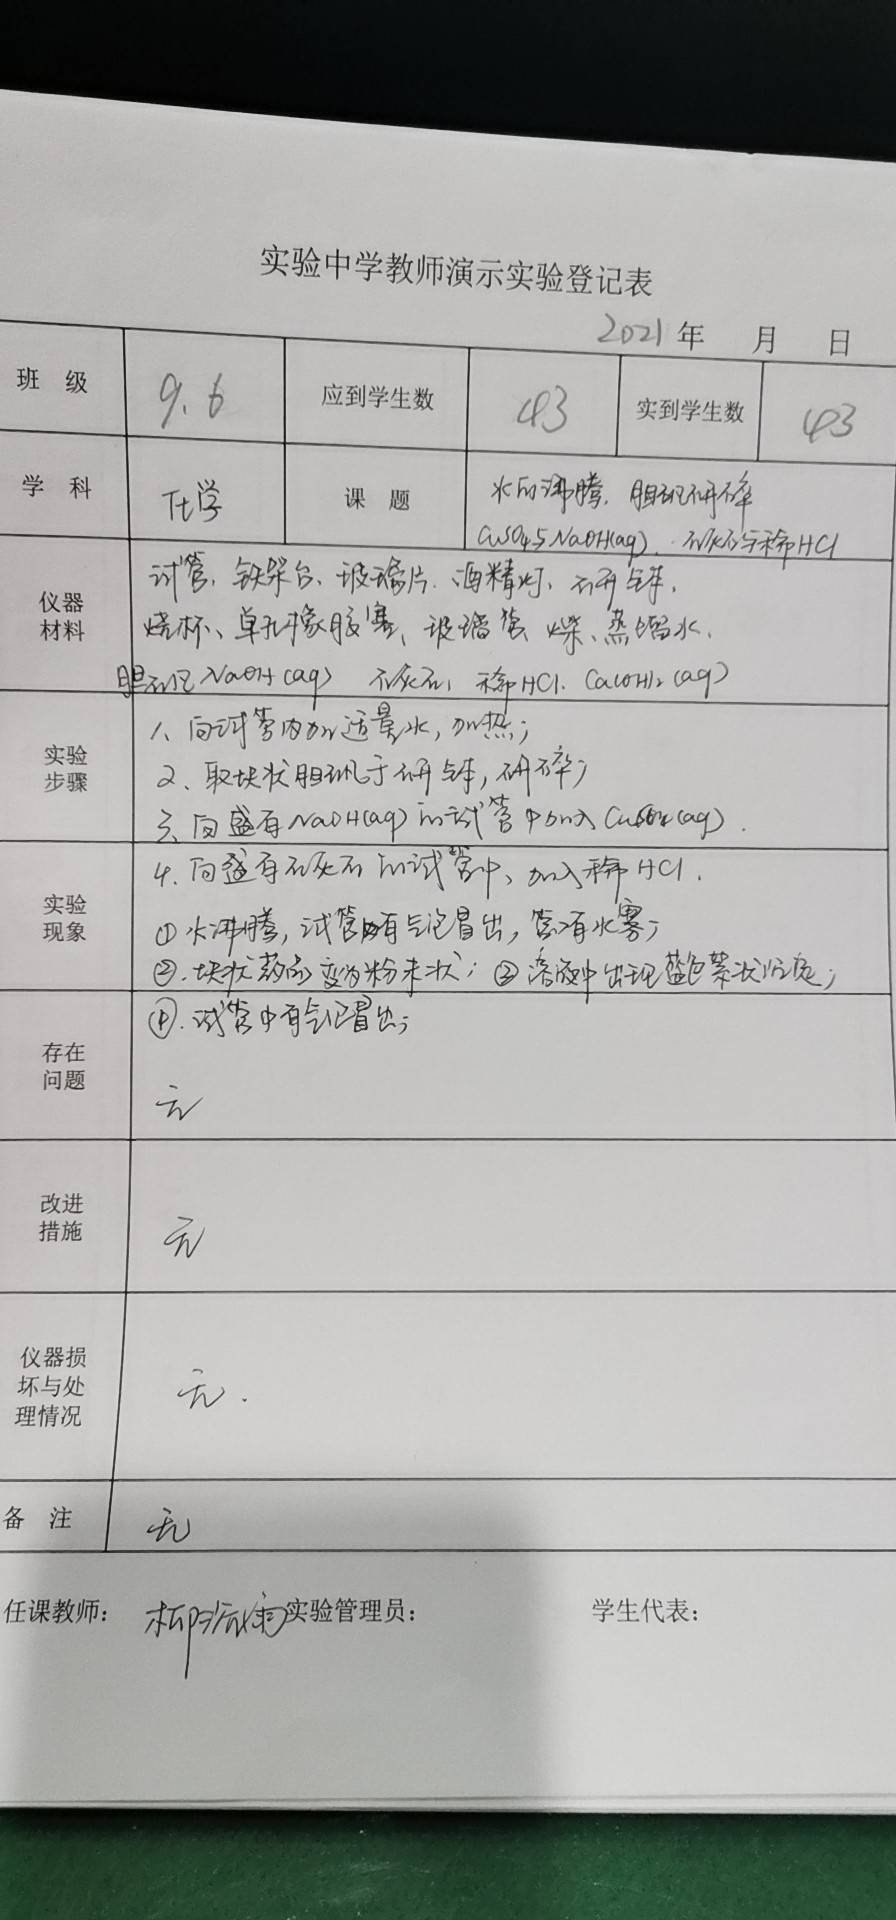 实验中学教师演示实验登记表
2021 年 月 日
班 级 9.6 应到学生数 43 实到学生数 43
学 科 化学 课 题 水的沸腾、胆矾研碎
CuSO4与NaOH(aq)、石灰石与稀HCl
仪器材料 试管、铁架台、玻璃片、酒精灯、研钵、
烧杯、单孔橡胶塞、玻璃管、火柴、蒸馏水、
胆矾 NaOH(aq) 石灰石、稀HCl、Ca(OH)2(aq)
实验步骤 1、向试管内加适量水,加热;
2、取块状胆矾于研钵,研碎;
3、向盛有NaOH(aq)的试管中加入CuSO4(aq).
4.向盛有石灰石的试管中,加入稀HCl.
实验现象 ①水沸腾,试管内有气泡冒出,管口有水雾;
②.块状药品变为粉末状;③溶液中出现蓝色絮状沉淀;
④.试管中有气泡冒出;
存在问题 无
改进措施 无
仪器损坏与处理情况 无.
备 注 无
任课教师: 实验管理员: 学生代表: